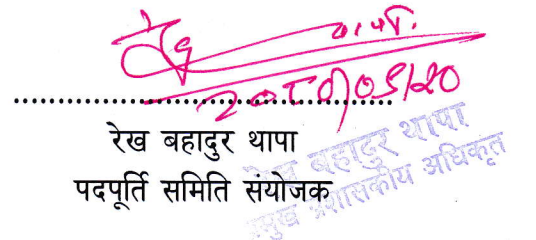 २०८०/०९/२०
रेख बहादुर थापा
पदपूर्ति समिति संयोजक
रेख बहादुर थापा
प्रमुख प्रशासकीय अधिकृत